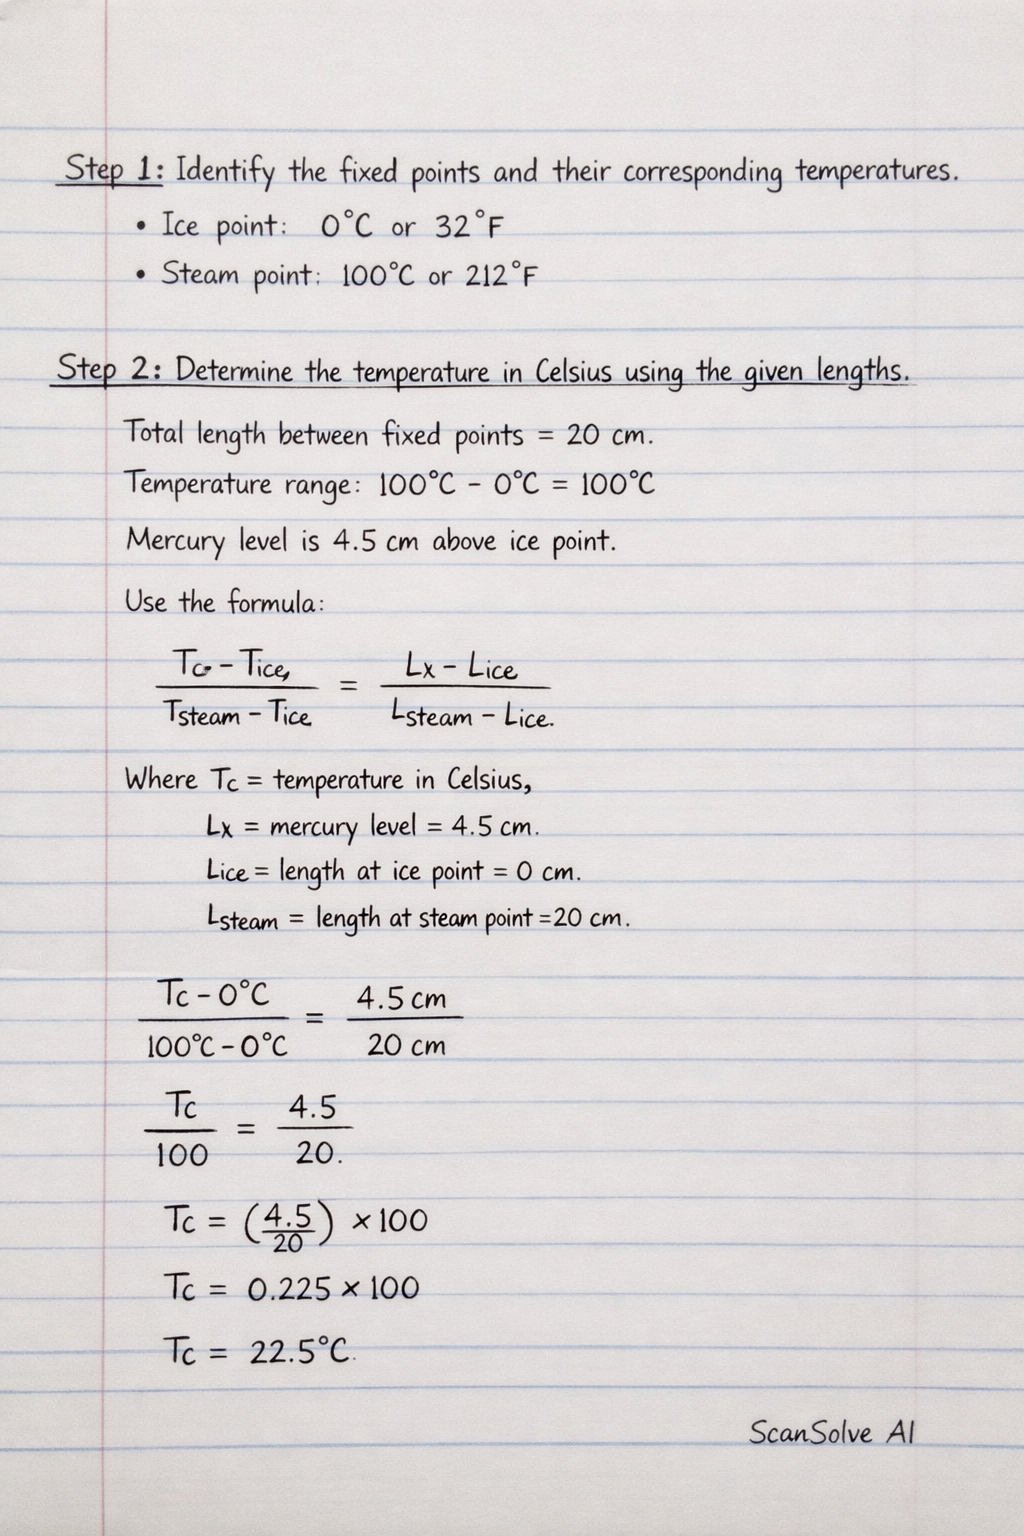 Step 1: Identify the fixed points and their corresponding temperatures.
• Ice point: 0°C or 32°F
• Steam point: 100°C or 212°F
Step 2: Determine the temperature in Celsius using the given lengths.
Total length between fixed points = 20 cm.
Temperature range: 100°C - 0°C = 100°C
Mercury level is 4.5 cm above ice point.
Use the formula:
Tc - Tice, / Tsteam - Tice = Lx - Lice / Lsteam - Lice.
Where Tc = temperature in Celsius,
Lx = mercury level = 4.5 cm.
Lice = length at ice point = 0 cm.
Lsteam = length at steam point = 20 cm.
Tc - 0°C / 100°C - 0°C = 4.5 cm / 20 cm
Tc / 100 = 4.5 / 20.
Tc = (4.5 / 20) × 100
Tc = 0.225 × 100
Tc = 22.5°C.
ScanSolve AI